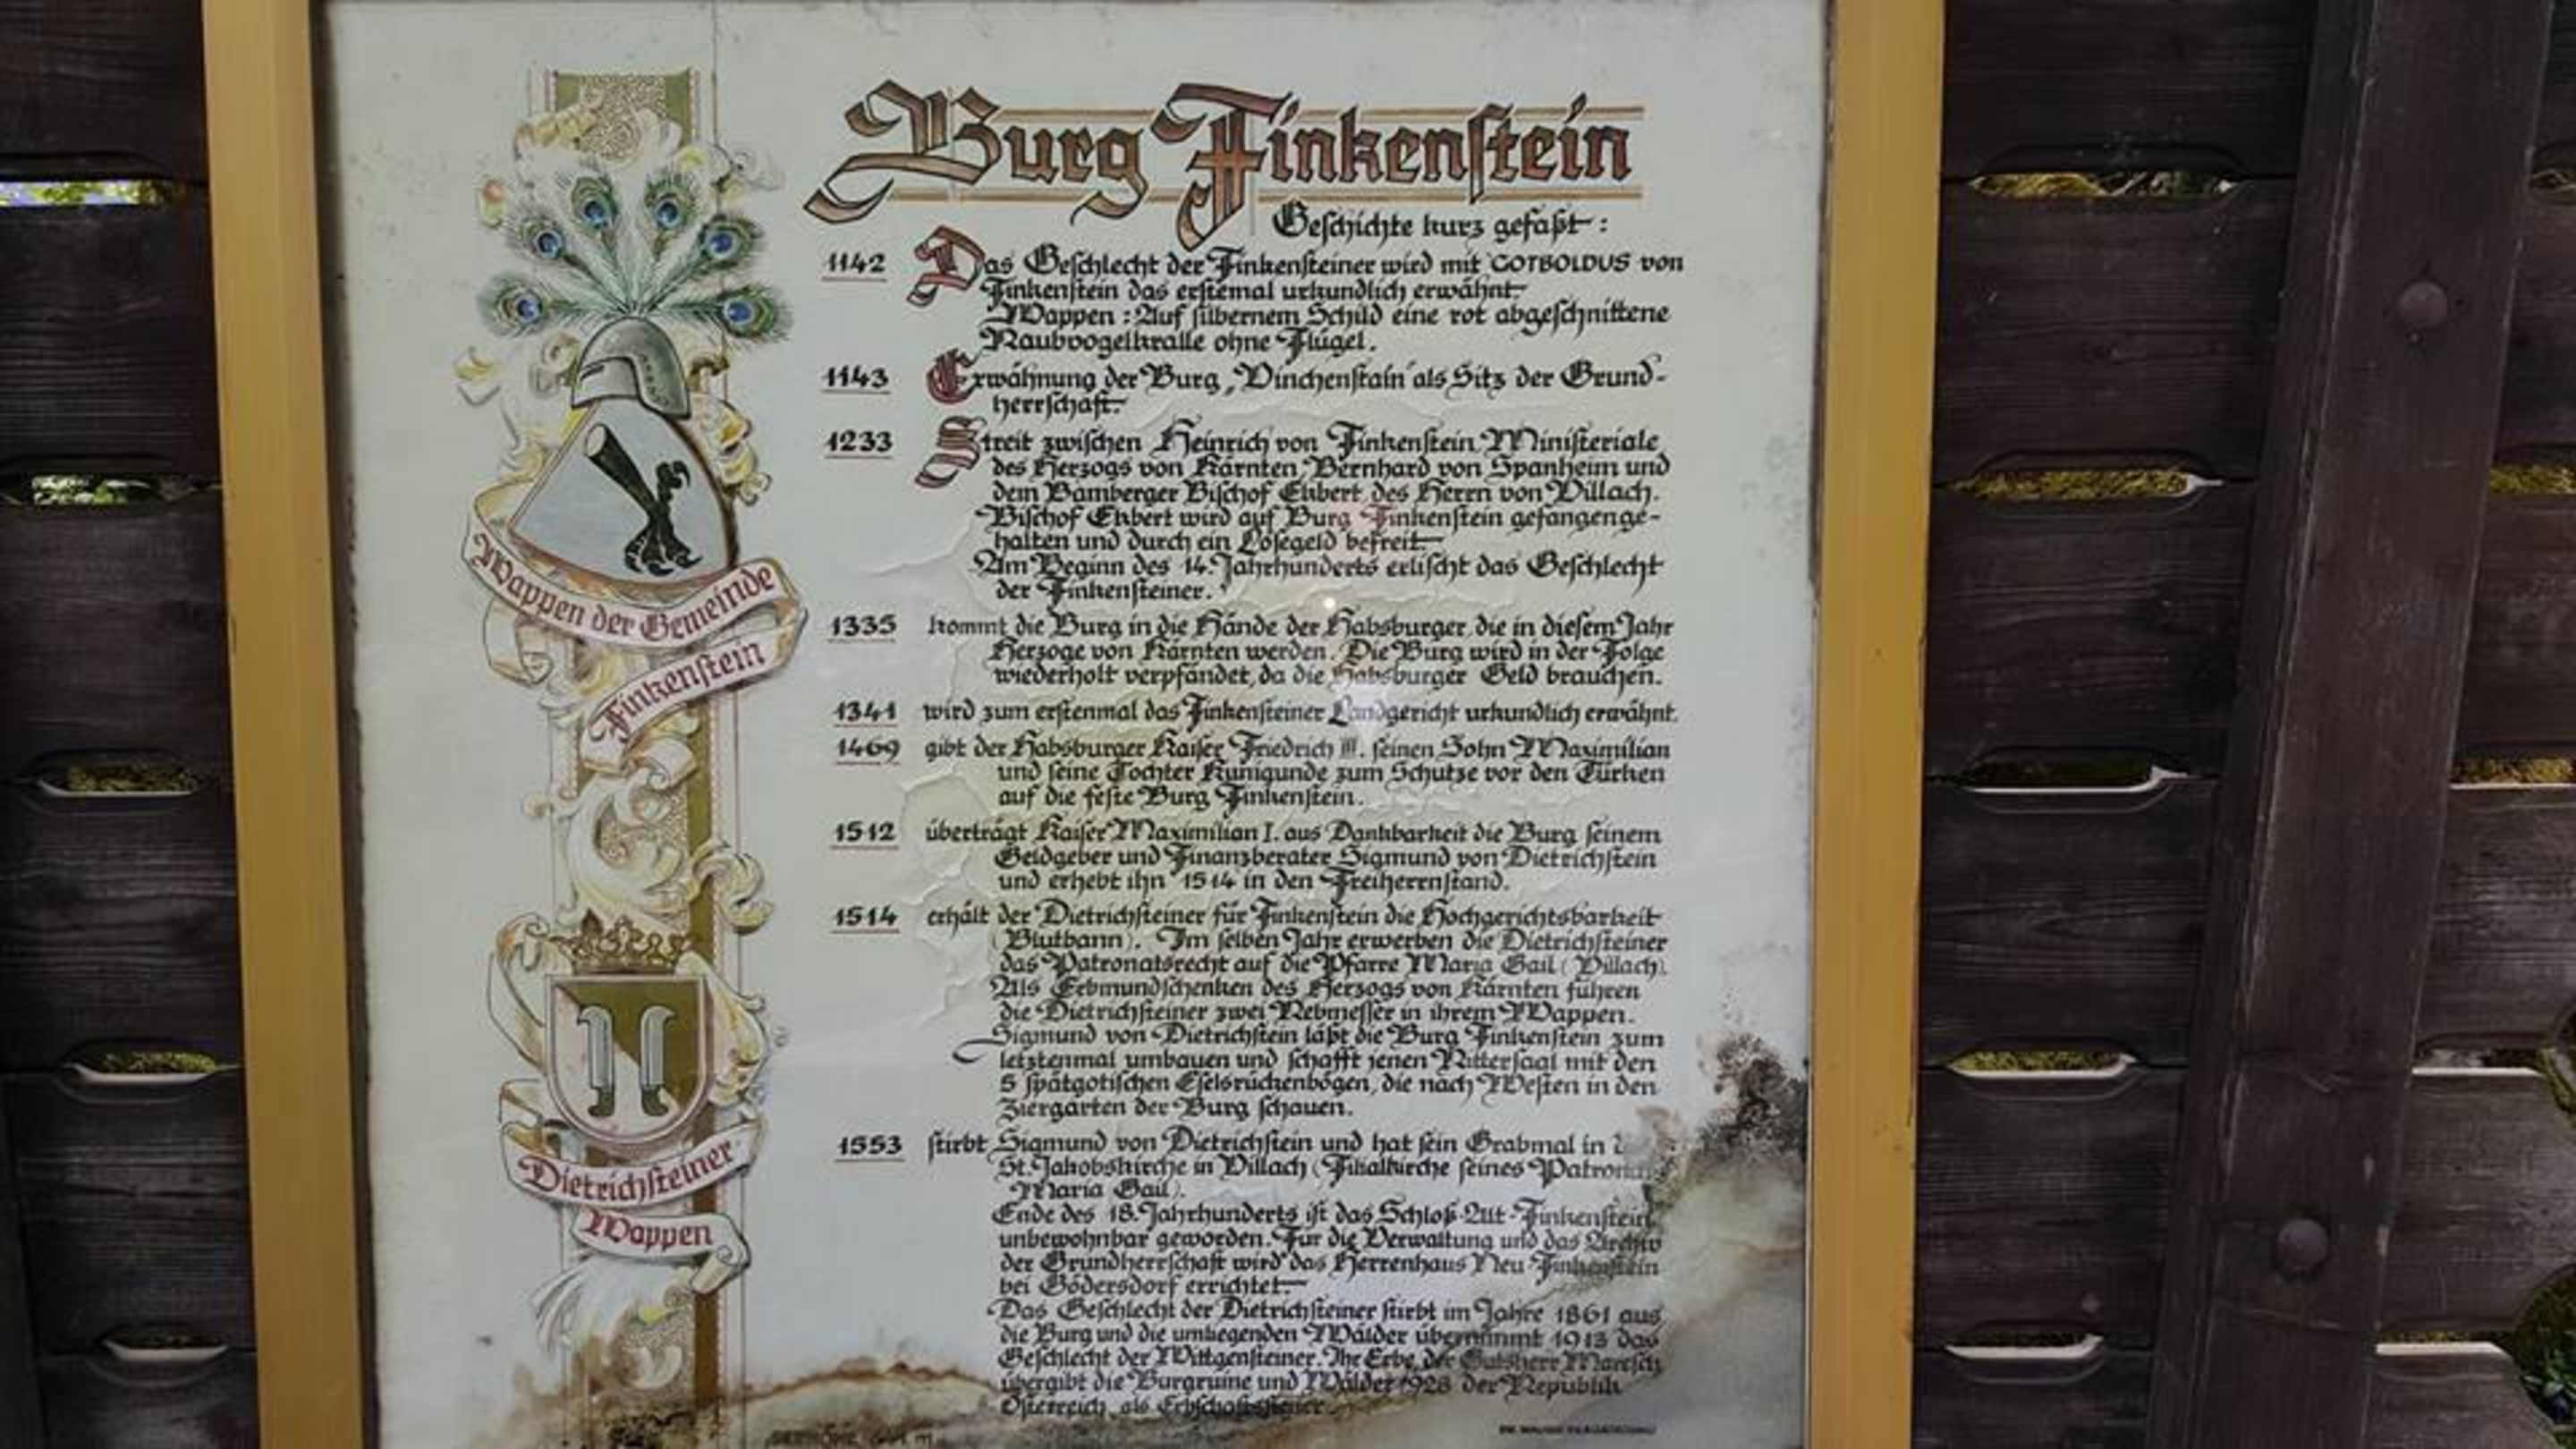 Burg Finkenstein
Geschichte kurz gefaßt:
1142 Das Geschlecht der Finkensteiner wird mit GOTBOLDUS von
Finkenstein das erstemal urkundlich erwähnt.
Wappen: Auf silbernem Schild eine rot abgeschnittene
Raubvogelkralle ohne Flügel.
1143 Erwähnung der Burg „Vinchenstain" als Sitz der Grund-
herrschaft.
1233 Streit zwischen Heinrich von Finkenstein, Ministeriale
des Herzogs von Kärnten, Bernhard von Spanheim und
dem Bamberger Bischof Ekbert, des Herrn von Villach.
Bischof Ekbert wird auf Burg Finkenstein gefangenge-
halten und durch ein Lösegeld befreit.
Am Beginn des 14. Jahrhunderts erlischt das Geschlecht
der Finkensteiner.
1335 kommt die Burg in die Hände der Habsburger, die in diesem Jahr
Herzoge von Kärnten werden. Die Burg wird in der Folge
wiederholt verpfändet, da die Habsburger Geld brauchen.
1341 wird zum erstenmal das Finkensteiner Landgericht urkundlich erwähnt.
1469 gibt der Habsburger Kaiser Friedrich III. seinen Sohn Maximilian
und seine Tochter Kunigunde zum Schutze vor den Türken
auf die feste Burg Finkenstein.
1512 überträgt Kaiser Maximilian I. aus Dankbarkeit die Burg seinem
Geldgeber und Finanzberater Sigmund von Dietrichstein
und erhebt ihn 1514 in den Freiherrenstand.
1514 erhält der Dietrichsteiner für Finkenstein die Hochgerichtsbarkeit
(Blutbann). Im selben Jahr erwerben die Dietrichsteiner
das Patronatsrecht auf die Pfarre Maria Gail (Villach).
Als Erbmundschenken des Herzogs von Kärnten führen
die Dietrichsteiner zwei Rebmesser in ihrem Wappen.
Sigmund von Dietrichstein läßt die Burg Finkenstein zum
letztenmal umbauen und schafft jenen Rittersaal mit den
5 spätgotischen Eselsrückenbögen, die nach Westen in den
Ziergarten der Burg schauen.
1553 stirbt Sigmund von Dietrichstein und hat sein Grabmal in
St. Jakobskirche in Villach (Filialkirche seines
Maria Gail).
Ende des 18. Jahrhunderts ist das Schloß Alt-Finkenstein
unbewohnbar geworden. Für die Verwaltung und das Archiv
der Grundherrschaft wird das Herrenhaus Neu-Finkenstein
bei Gödersdorf errichtet.
Das Geschlecht der Dietrichsteiner stirbt im Jahre 1861 aus
die Burg und die umliegenden Wälder übernimmt 1913 das
Geschlecht der Wittgensteiner. Ihr Erbe, der Gutsherr Maresch
übergibt die Burgruine und Wälder 1928 der Republik
Österreich als Erbschaftssteuer.
Wappen der Gemeinde
Finkenstein
Dietrichsteiner
Wappen